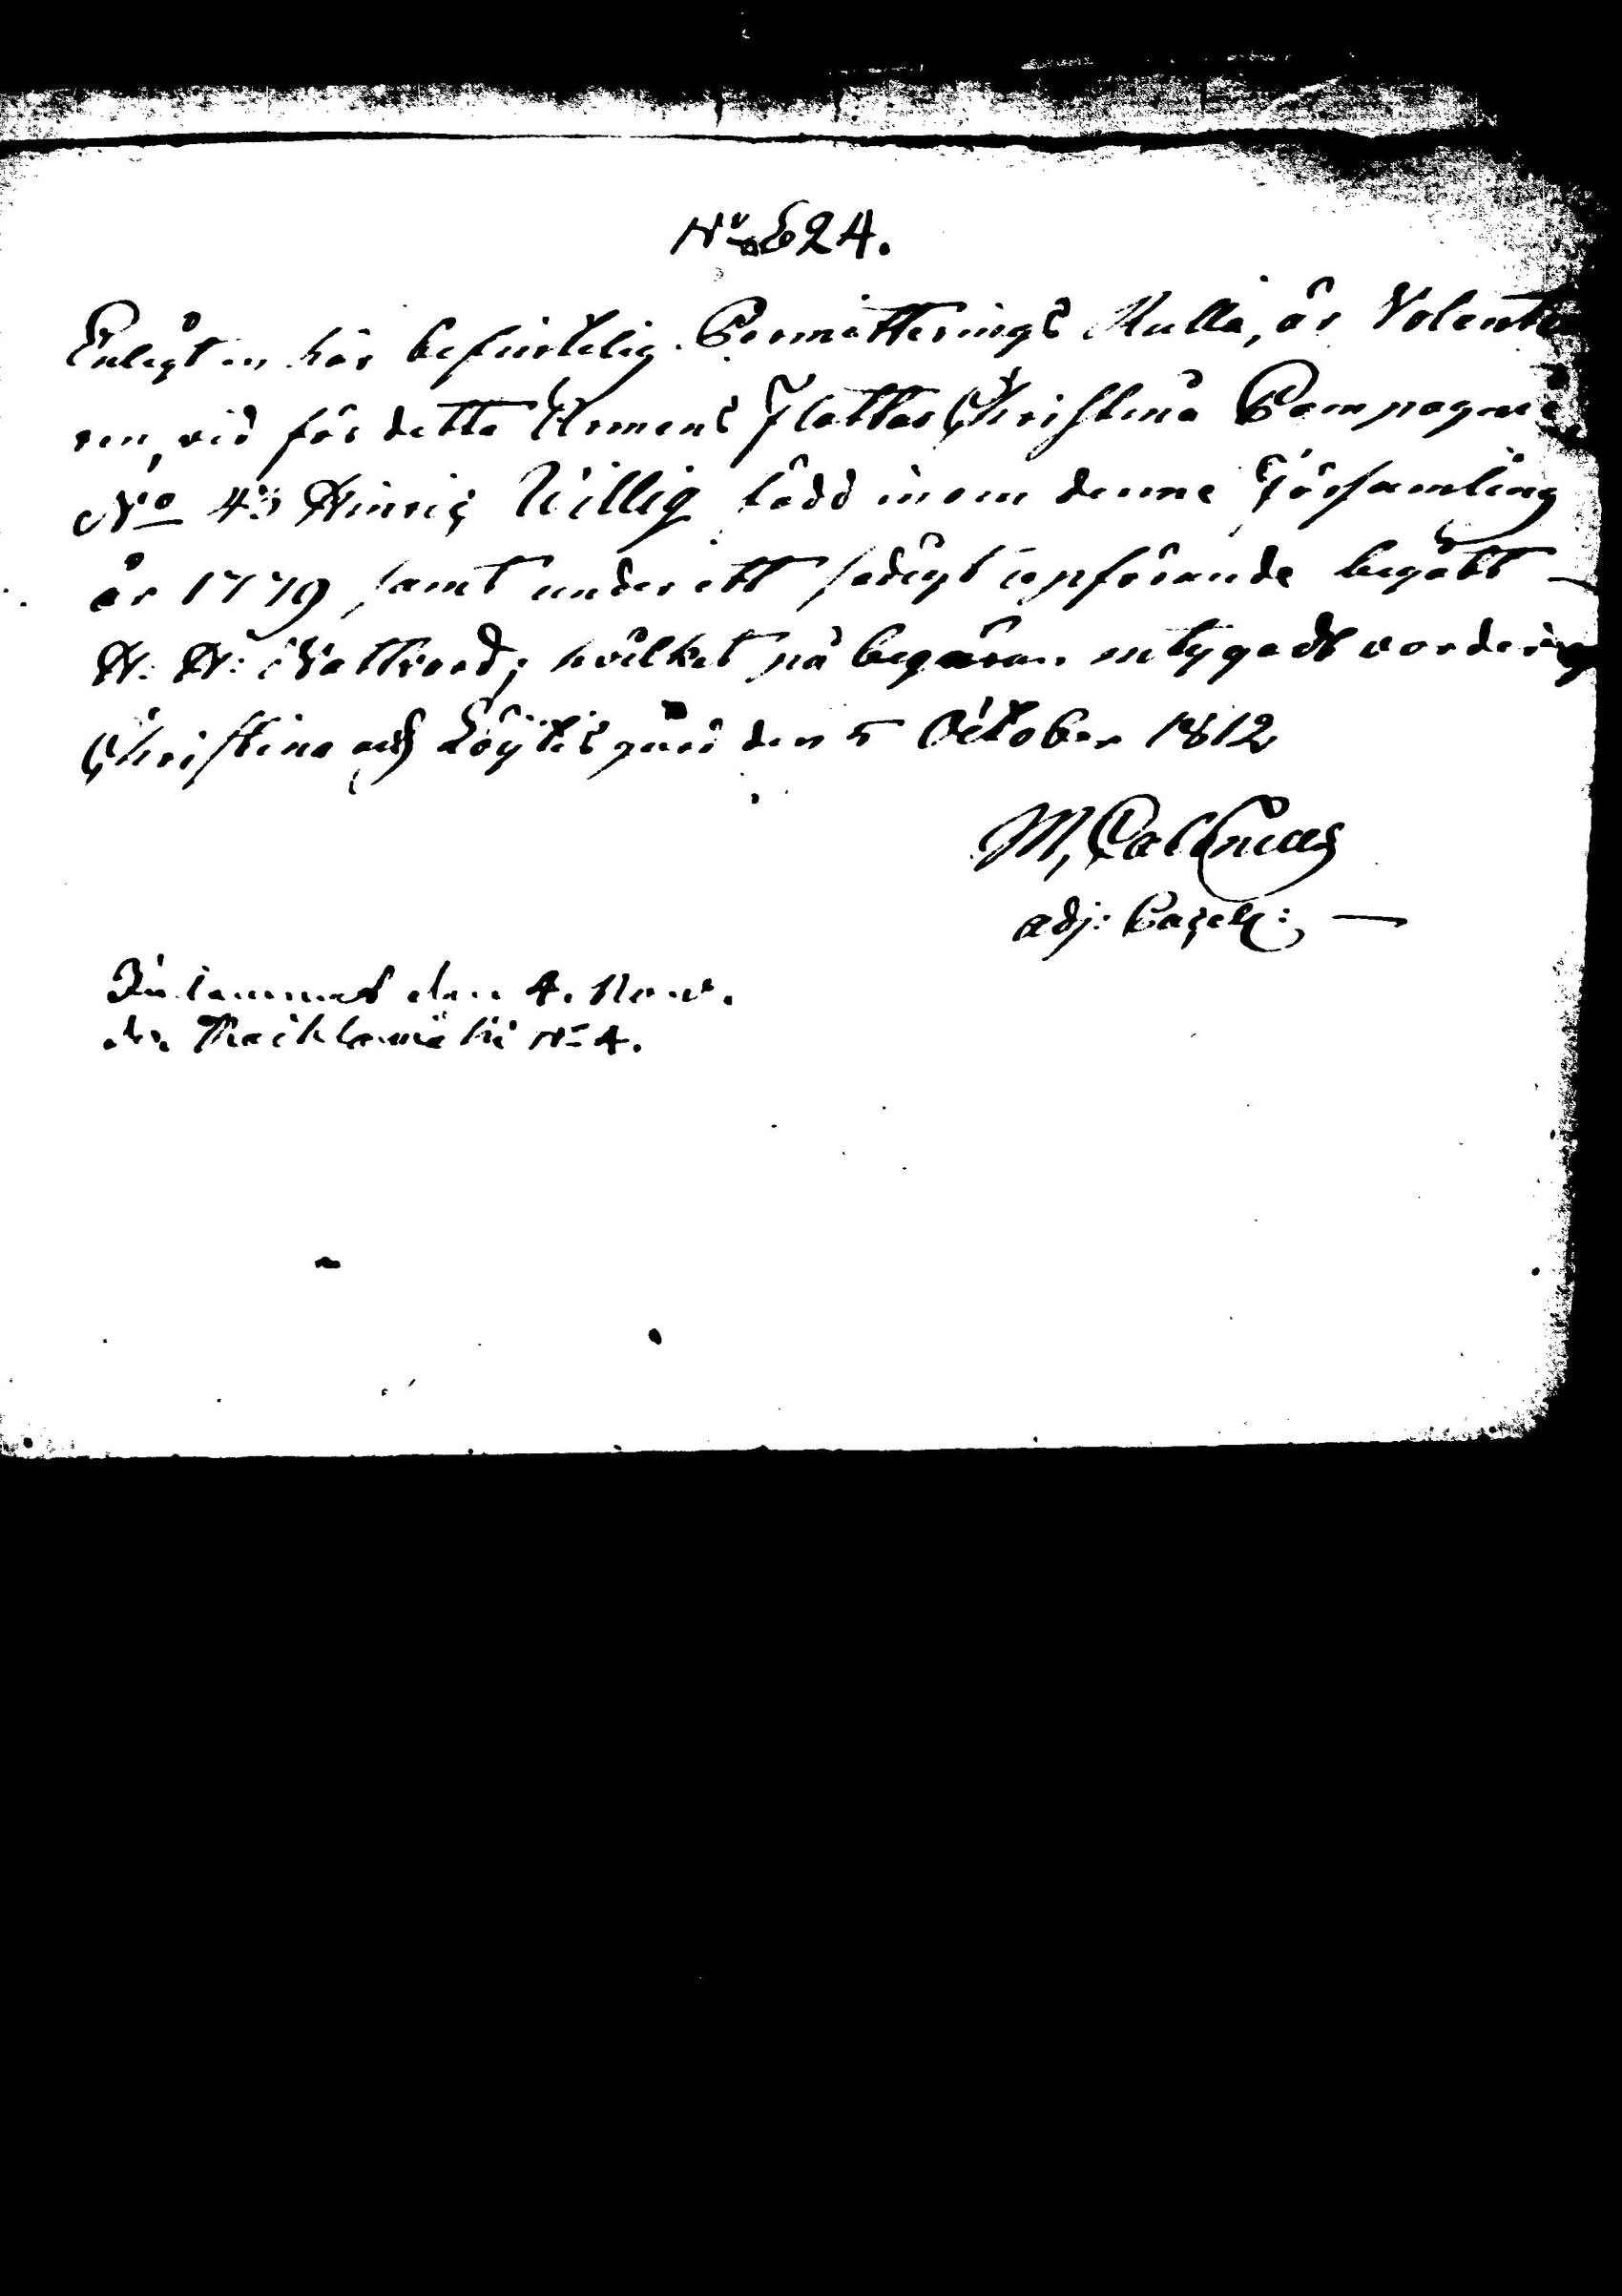 No 524.
Enligt en här befintelig Permitterings Rulla, är Volentö
ren, vid för detta Armens Flottas Christina Compagnie
No 43 Hinric Willig född inom denne Församling
år 1779 samt under ett sedigt upförande begått
H. H: Nattvard; hvilket på begäran intygadt varder af
Christina och Löytis gård den 5 October 1812
M, Calenius
adj: Pazell:
Inkommet den 4. Nov.
No 4.